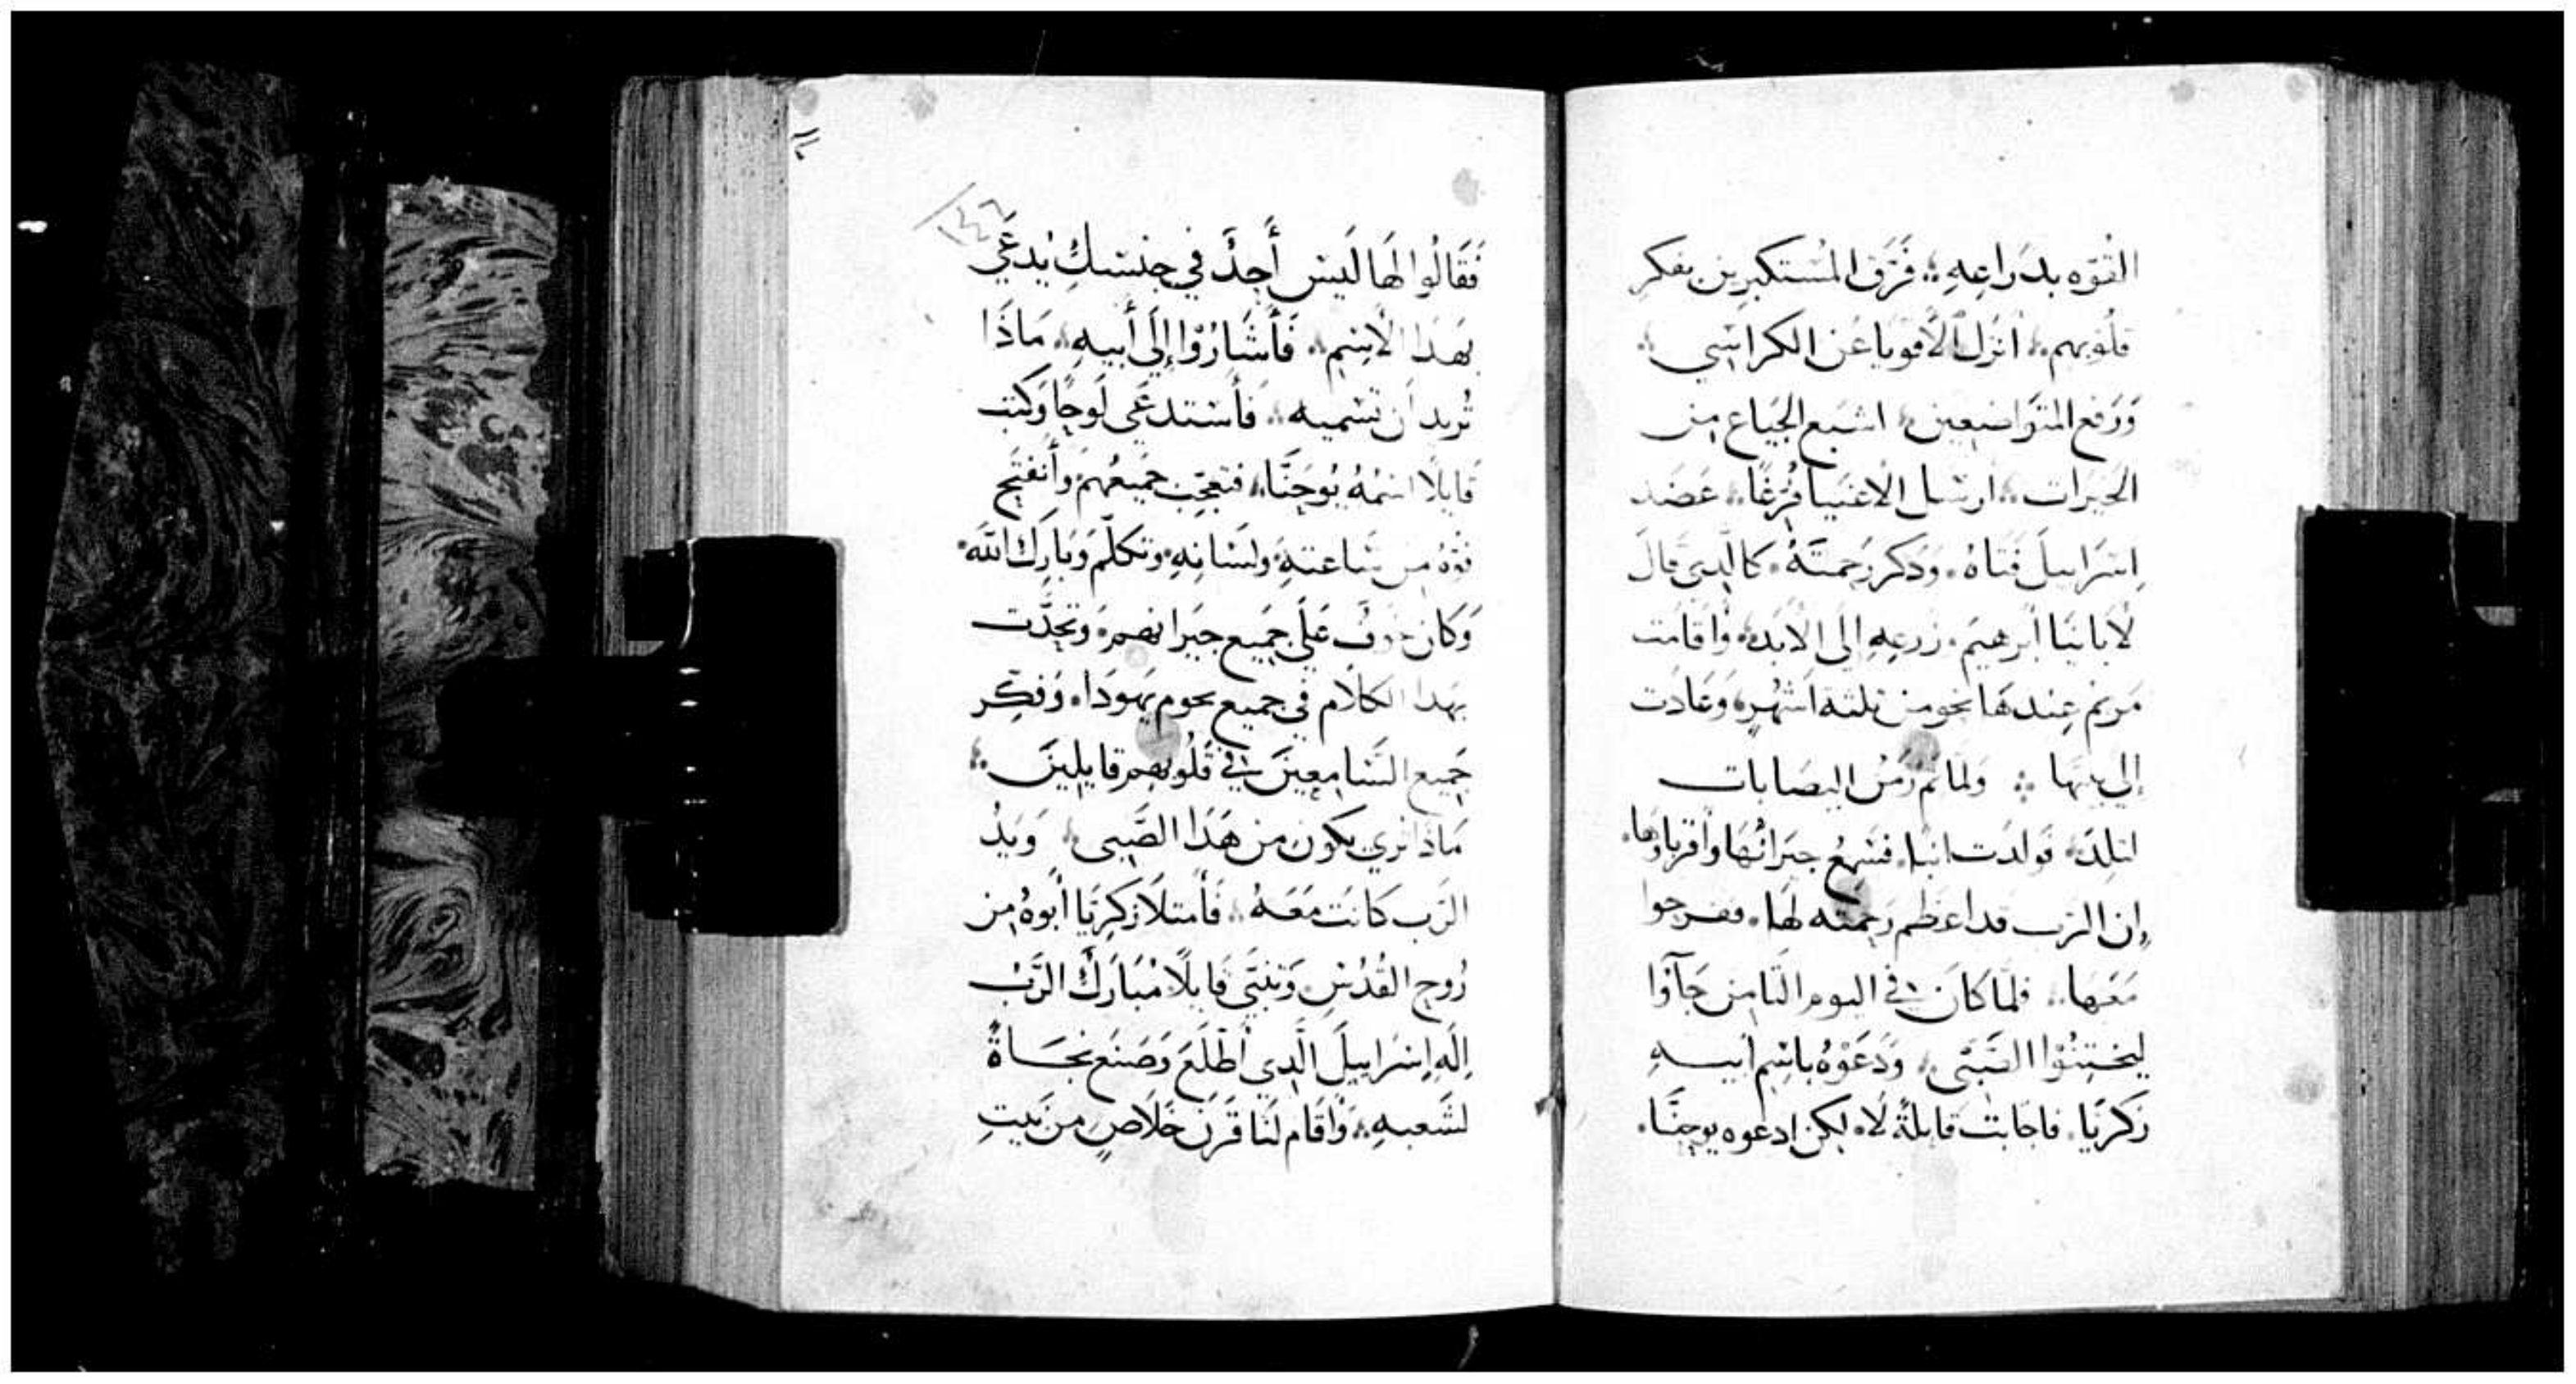 القوه بدراعِهِ ؞ فَرَّق المُستكبرين بفكرِ
قلُوبهم ؞ انزل الأقويا عَن الكراسي ؞
وَرَفع المتَواضِعين ؞ اشبع الجيَاع مِن
الخيرات ؞ ارسل الاغنيا فُرَّغًا ؞ عَضَد
اِسرَاييلَ فَتاهُ ۰ وَذكر رَحمتَهُ ۰ كالدِي قالَ
لأبائنَا أبرهيمَ ۰ زرعِهِ إلى الابد ؞ وأقامت
مَريَمْ عِندهَا نحو من ثلثة اَشهُرٍ ؞ وَعَادَت
إلى بيتها ؞ ولما تم زمَنُ اليصَابات
لتلِدَ ؞ فولدَت ابنًا ؞ فسَمِعُ جيرَانُهَا وأقرباوها ۰
إن الرب قد اعظم رَحمَته لهَا ۰ ففرحوا
مَعَها ؞ فلمّا كانَ في اليوم الثامِن جَآوا
ليختِنُوا الصَّبَي ؞ وَدَعَوْهُ باسم ابيهِ
زَكريَا ؞ فاجَابت قايلةً لا ۰ لكن ادعوه يوحنَّا ۰
١٤٦
فَقَالُوا لهَا لَيسَ أَحدٌ في جِنسكِ يُدعَي
بهَدَا الأسمِ ؞ فَأَشَارُوْا إلَي أَبيهِ ؞ مَاذَا
تُريد أن تسَميه ؞ فأستدعَى لَوحًا وَكتب
قَايلًا اسمُهُ يُوحَنَّا ؞ فتعجّبَ جَميعُهم وأنفتَح
فُوْهُ من سَاعتهِ وَلسَانهِ ۰ وَتكلّمَ وَبَارَك الله ۰
وَكان خوفٌ عَلَى جَميع جيرَانهم ؞ وَتحَدَّت
بهدا الكلَام في جميع تخوم يَهودَا ۰ وَفكّر
جَميع السَّامعِينَ في قُلُوبهم قايلينَ ؞
مَاذا تري يكون من هَدَا الصَّبي ؞ وَيَدُ
الرَب كانَت مَعَهُ ؞ فَأمتلَأ زكريَا أَبوهُ مِن
رُوح القُدُسِ وَتنبَّي قَايلًا مُبَارَكٌ الرَّبُ
إلَه اِسرَاييلَ الَّدِي أطْلَعَ وَصَنَع نجَاةً
لشَعبهِ ؞ وَأقَام لنَا قَرنَ خَلَاصٍ من بَيتِ